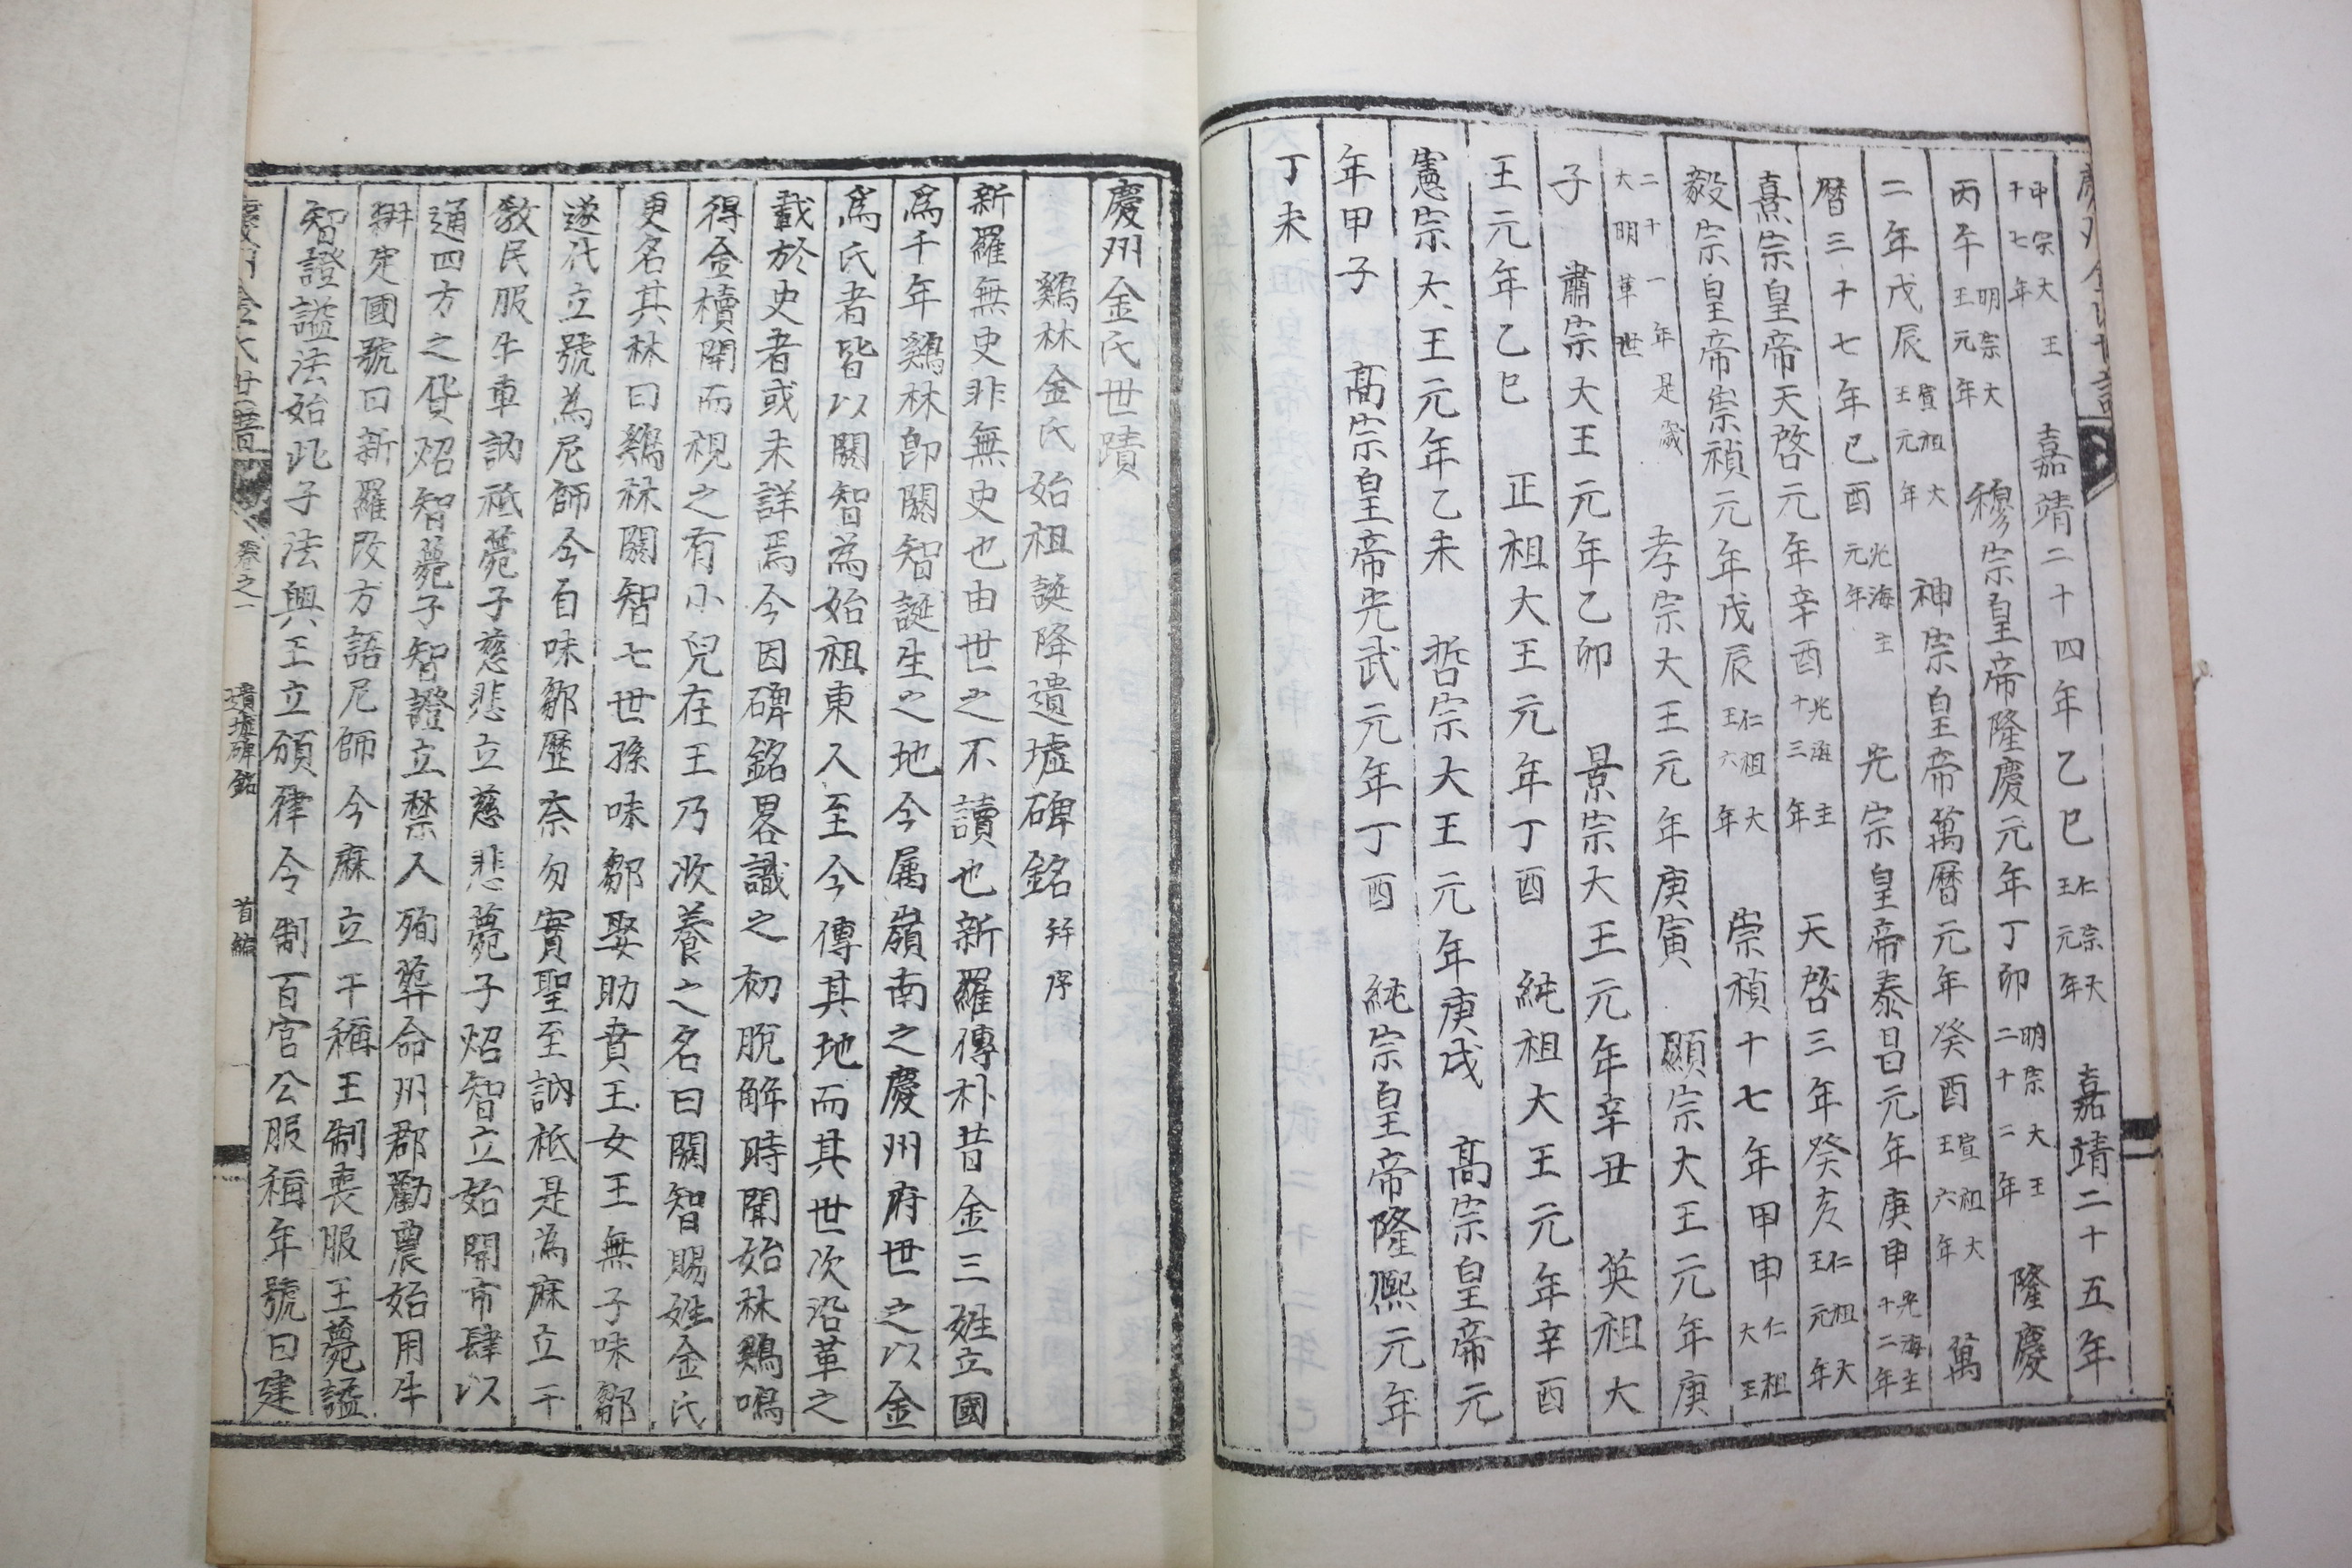 中宗大王十七年 嘉靖二十四年乙巳 仁宗大王元年 嘉靖二十五年
丙午 明宗大王元年 穆宗皇帝隆慶元年丁卯 明宗大王二十二年 隆慶
二年戊辰 宣祖大王元年 神宗皇帝萬曆元年癸酉 宣祖大王六年 萬
曆三十七年己酉 光海主元年 光宗皇帝泰昌元年庚申 光海主十二年
熹宗皇帝天啓元年辛酉 光海主十三年 天啓三年癸亥 仁祖大王元年
毅宗皇帝崇禎元年戊辰 仁祖大王六年 崇禎十七年甲申 仁祖大王
二十一年是歲大明革世 孝宗大王元年庚寅 顯宗大王元年庚
子 肅宗大王元年乙卯 景宗大王元年辛丑 英祖大
王元年乙巳 正祖大王元年丁酉 純祖大王元年辛酉
憲宗大王元年乙未 哲宗大王元年庚戌 高宗皇帝元
年甲子 高宗皇帝光武元年丁酉 純宗皇帝隆熙元年
丁未
慶州金氏世蹟
鷄林金氏始祖誕降遺墟碑銘 幷序
新羅無史非無史也由世之不讀也新羅傳朴昔金三姓立國
爲千年鷄林卽閼智誕生之地今属嶺南之慶州府世之以金
爲氏者皆以閼智為始祖東人至今傳其地而其世次沿革之
載於史者或未詳焉今因碑銘畧識之初脫解時聞始林鷄鳴
得金櫝開而視之有小兒在王乃收養之名曰閼智賜姓金氏
更名其林曰鷄林閼智七世孫味鄒娶助賁王女王無子味鄒
遂代立號為尼師今自味鄒歷奈勿實聖至訥祗是為麻立干
敎民服牛車訥祗薨子慈悲立慈悲薨子炤智立始開市肆以
通四方之貨炤智薨子智證立禁人殉葬命州郡勸農始用牛
耕定國號曰新羅改方語尼師今麻立干稱王制喪服王薨諡
智證諡法始此子法興王立頒律令制百官公服稱年號曰建
慶州金氏世譜 卷之一 遺墟碑銘 首編